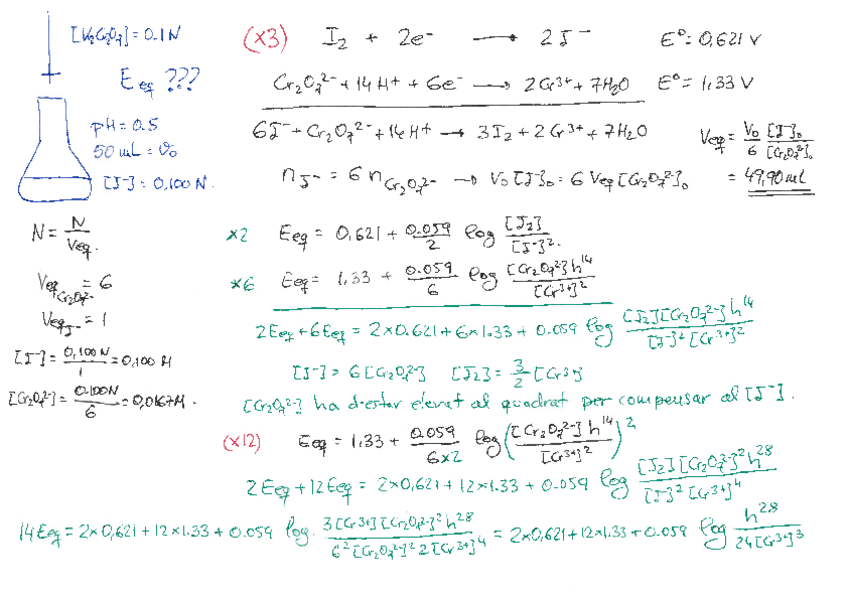 [K₂Cr₂O₇] = 0.1 N
E eq ???
pH = 0.5
50 mL = V₀
[I⁻] = 0,100 N.
(x3) I₂ + 2e⁻ → 2I⁻ E° = 0,621 V
Cr₂O₇²⁻ + 14H⁺ + 6e⁻ → 2Cr³⁺ + 7H₂O E° = 1,33 V
6I⁻ + Cr₂O₇²⁻ + 14H⁺ → 3I₂ + 2Cr³⁺ + 7H₂O
Veq = V₀/6 [I⁻]₀/[Cr₂O₇²⁻]₀
= 49,90 mL
n I⁻ = 6 n Cr₂O₇²⁻ → V₀ [I⁻]₀ = 6 Veq [Cr₂O₇²⁻]₀
N = N/Veq.
Veq Cr₂O₇²⁻ = 6
Veq I⁻ = 1
[I⁻] = 0,100 N/1 = 0,100 M
[Cr₂O₇²⁻] = 0.100 N/6 = 0,0167 M.
x2 Eeq = 0,621 + 0.059/2 log [I₂]/[I⁻]².
x6 Eeq = 1,33 + 0.059/6 log [Cr₂O₇²⁻]h¹⁴/[Cr³⁺]²
2Eeq + 6Eeq = 2x0.621 + 6x1.33 + 0.059 log [I₂][Cr₂O₇²⁻]h¹⁴/[I⁻]²[Cr³⁺]²
[I⁻] = 6[Cr₂O₇²⁻] [I₂] = 3/2 [Cr³⁺]
[Cr₂O₇²⁻] ha d'estar elevat al quadrat per compensar al [I⁻].
(x12) Eeq = 1,33 + 0.059/6x2 log([Cr₂O₇²⁻]h¹⁴/[Cr³⁺]²)²
2Eeq + 12Eeq = 2x0,621 + 12x1.33 + 0.059 log [I₂][Cr₂O₇²⁻]²h²⁸/[I⁻]²[Cr³⁺]⁴
14Eeq = 2x0,621 + 12x1.33 + 0.059 log. 3[Cr³⁺][Cr₂O₇²⁻]²h²⁸/6²[Cr₂O₇²⁻]²2[Cr³⁺]⁴ = 2x0,621 + 12x1.33 + 0.059 log h²⁸/24[Cr³⁺]³